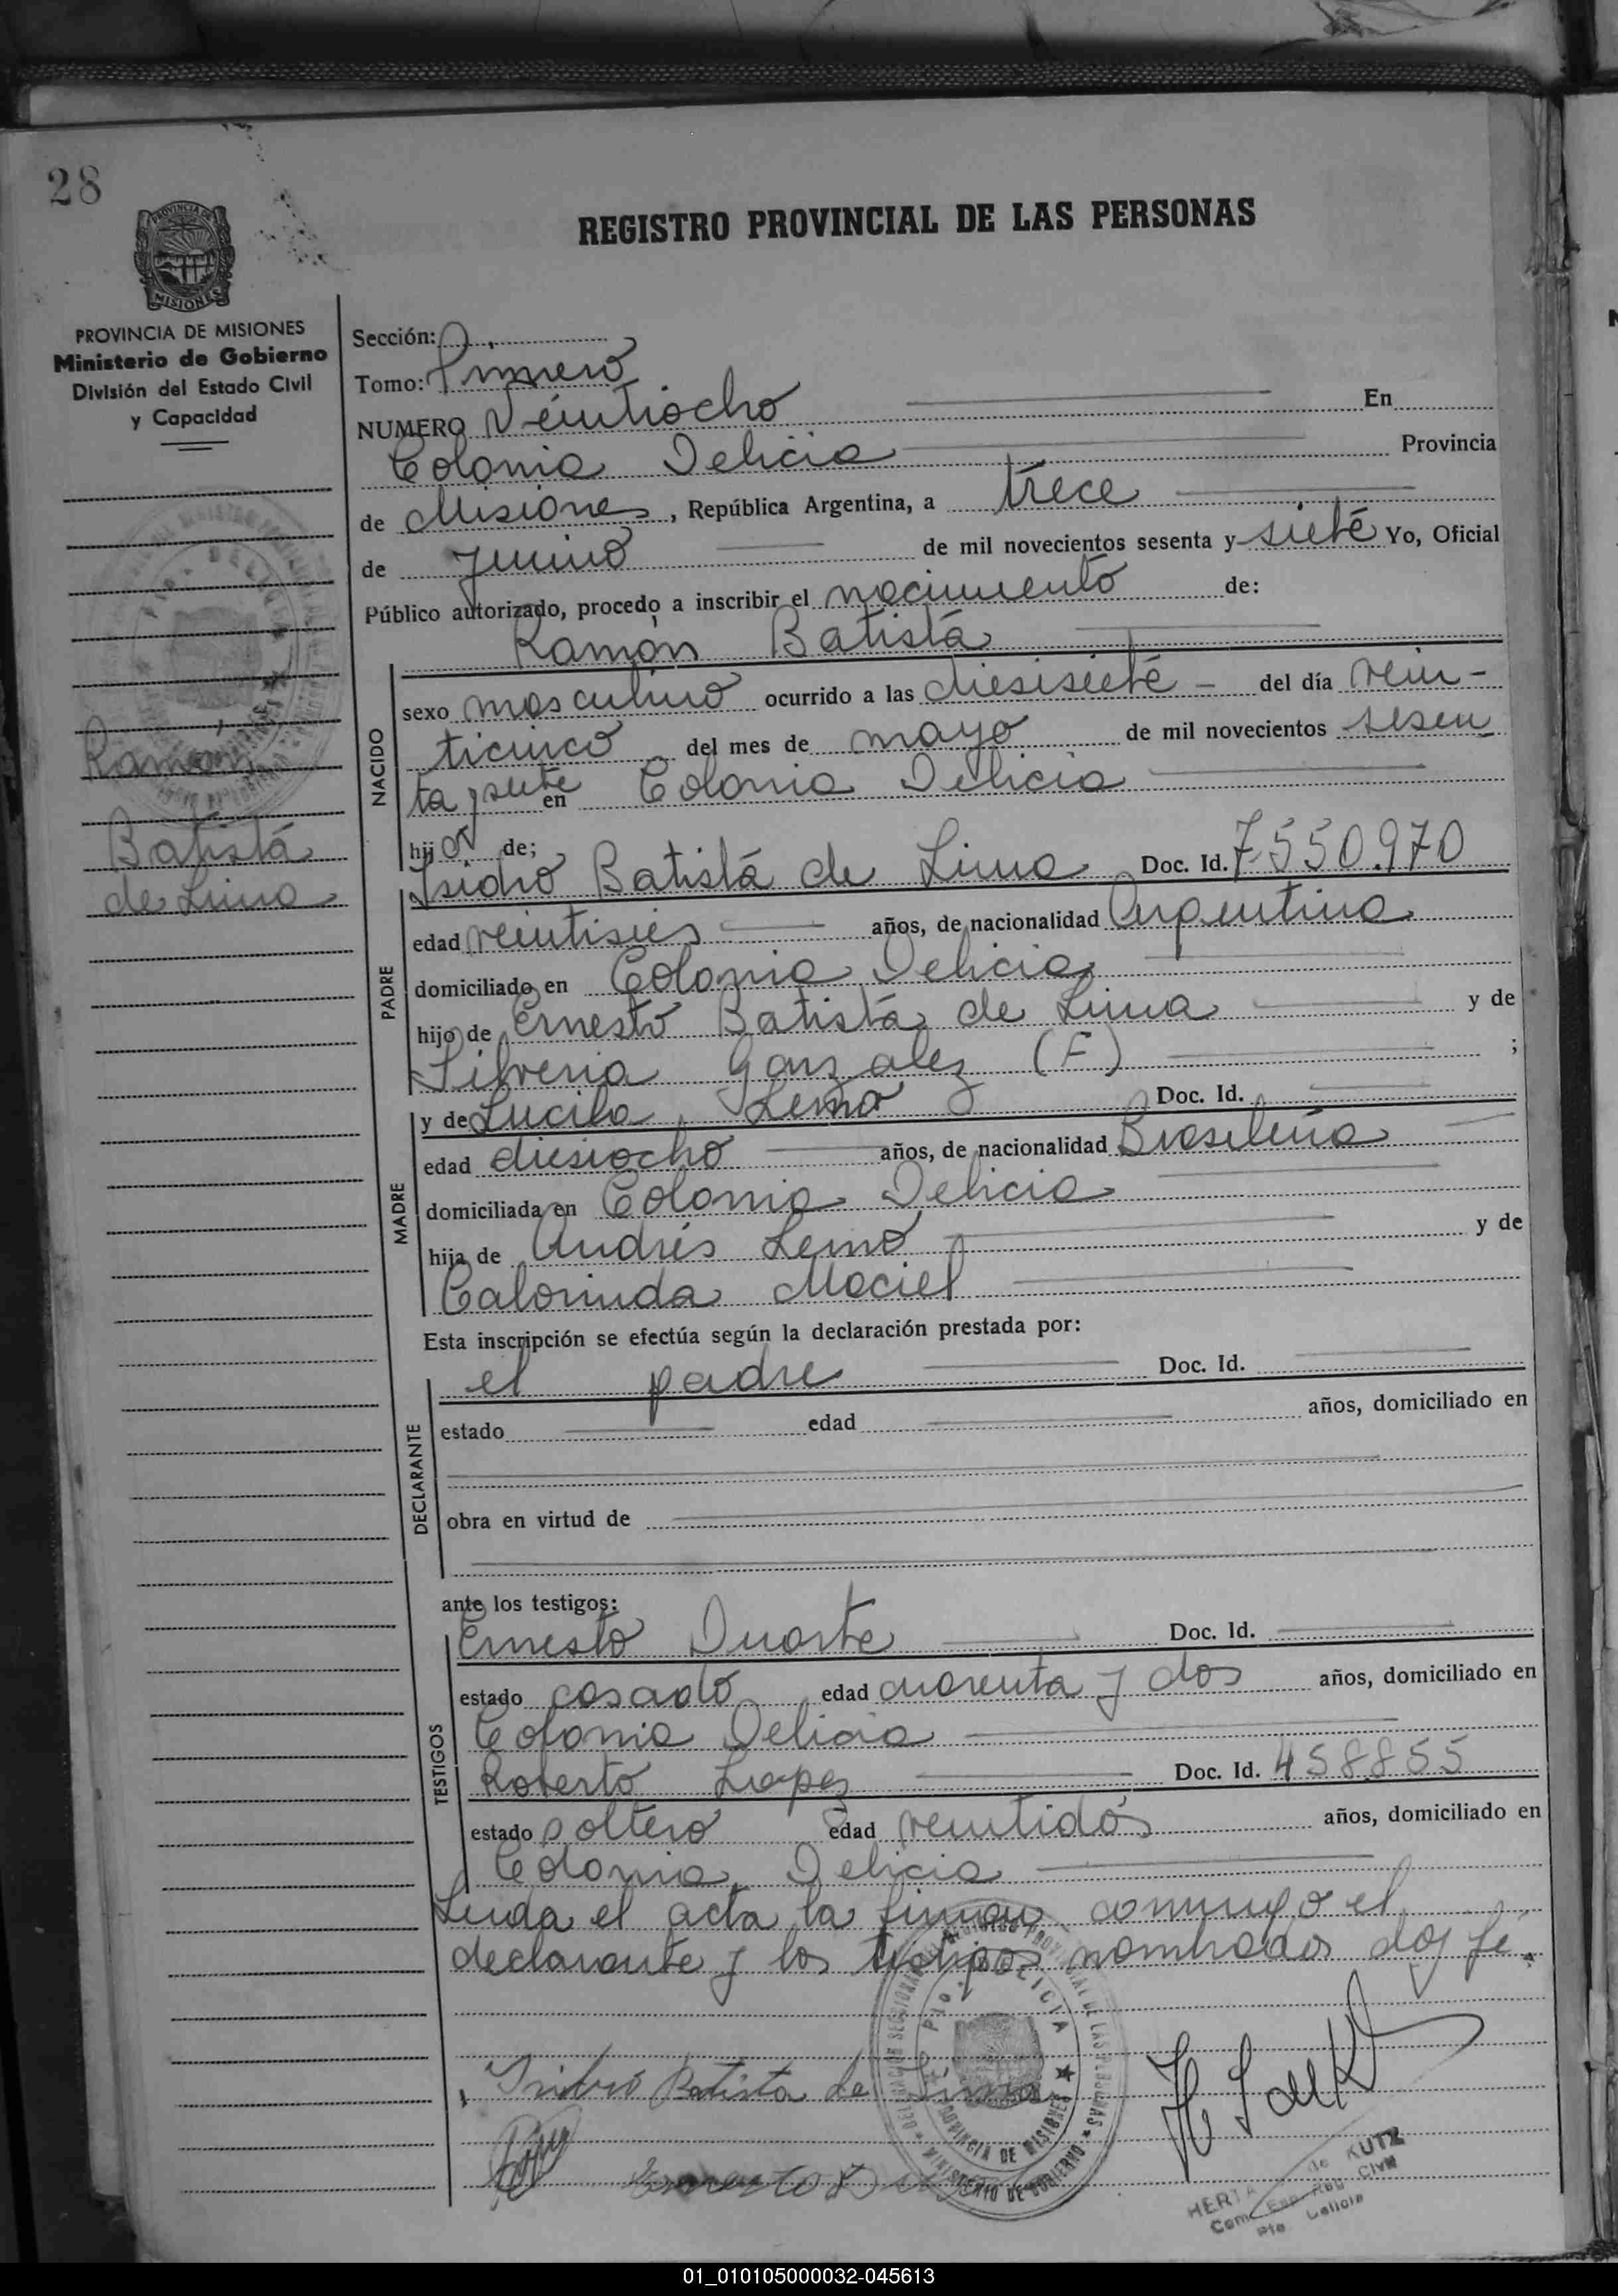 28
PROVINCIA DE
MISIONES
REGISTRO PROVINCIAL DE LAS PERSONAS
PROVINCIA DE MISIONES
Ministerio de Gobierno
División del Estado Civil
y Capacidad
Ramón
Batistá
de Lima
Sección:
Tomo: Primero
NUMERO Veintiocho En
Colonia Delicia Provincia
de Misiones, República Argentina, a trece
de Junio de mil novecientos sesenta y siete Yo, Oficial
Público autorizado, procedo a inscribir el nacimiento de:
Ramón Batistá
NACIDO
sexo masculino ocurrido a las diesisiete - del día vein-
ticinco del mes de mayo de mil novecientos sesen
ta y siete en Colonia Delicia
hijo de;
PADRE
Isidro Batistá de Lima Doc. Id. 7550.970
edad veintisies años, de nacionalidad Argentina
domiciliado en Colonia Delicia
hijo de Ernesto Batistá de Lima y de
Silveria Gonzalez (F) ;
MADRE
y de Lucila Lemo Doc. Id.
edad diesiocho años, de nacionalidad Brasileña
domiciliada en Colonia Delicia
hija de Andrés Lemo y de
Calorinda Maciel
Esta inscripción se efectúa según la declaración prestada por:
DECLARANTE
el padre Doc. Id.
estado edad años, domiciliado en
obra en virtud de
ante los testigos:
TESTIGOS
Ernesto Duarte Doc. Id.
estado casado edad cuarenta y dos años, domiciliado en
Colonia Delicia
Roberto Lopez Doc. Id. 458855
estado soltero edad veintidós años, domiciliado en
Colonia Delicia
Leida el acta la firman conmigo el
declarante y los testigos nombrados doy fé.
Isidro Batista de Lima
Ernesto D
PTO. DELICIA
PROVINCIA DE MISIONES
MINISTERIO DE GOBIERNO
HERTA de KUTZ
Reg. Civil
Pto. Delicia
01_010105000032-045613